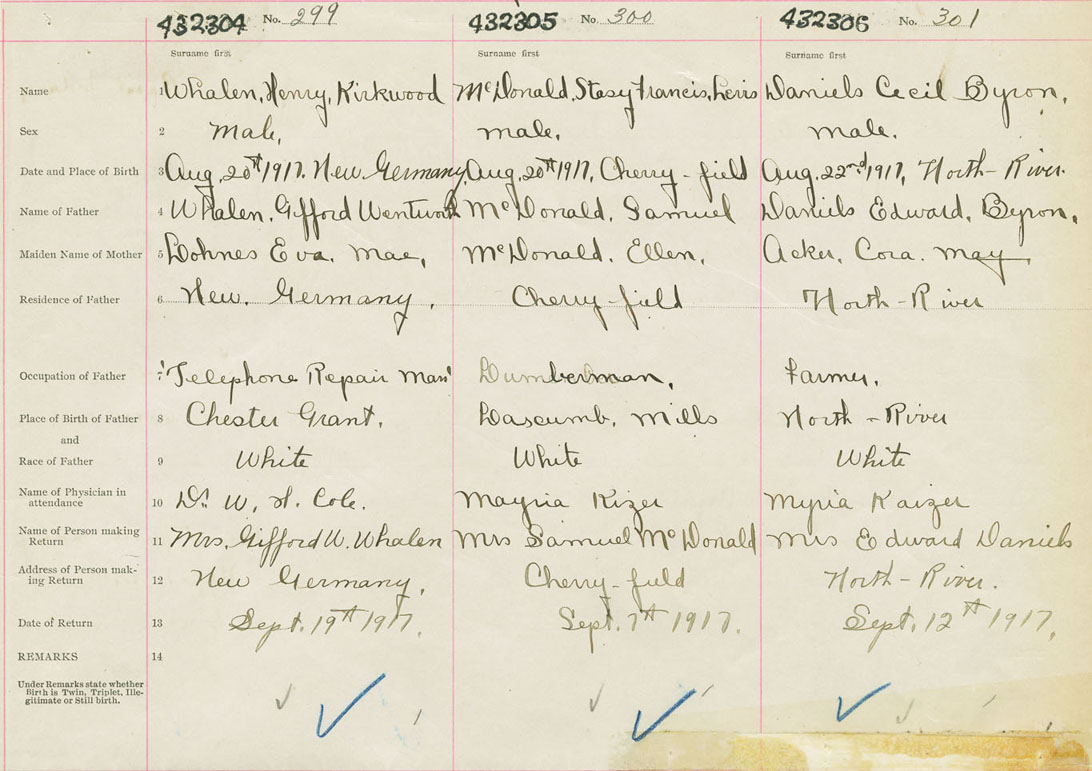 432304 No. 299 432305 No. 300 432306 No. 301
Surname first Surname first Surname first
Name 1 Whalen, Henry, Kirkwood McDonald, Stasy Francis, Daniels Cecil Byron,
Sex 2 Male, male, male.
Date and Place of Birth 3 Aug, 20th 1917. New Germany, Aug, 20th 1917, Cherry-field Aug. 22nd 1917, North-River.
Name of Father 4 Whalen, Gifford Wentworth McDonald, Samuel Daniels Edward, Byron,
Maiden Name of Mother 5 Dohnes Eva, Mae, McDonald, Ellen, Acker, Cora. May
Residence of Father 6 New. Germany, Cherry-field North-River
Occupation of Father 7 Telephone Repair Man Lumberman, Farmer,
Place of Birth of Father 8 Chester Grant, Mills North-River
and
Race of Father 9 White White White
Name of Physician in
attendance 10 Dr. W. H. Cole. Mayria Kizer Myria Kaizer
Name of Person making
Return 11 Mrs, Gifford W. Whalen Mrs Samuel McDonald Mrs Edward Daniels
Address of Person mak-
ing Return 12 New Germany, Cherry-field North-River.
Date of Return 13 Sept. 19th 1917. Sept. 7th 1917. Sept. 12th 1917,
REMARKS 14
Under Remarks state whether
Birth is Twin, Triplet, Ille-
gitimate or Still birth.